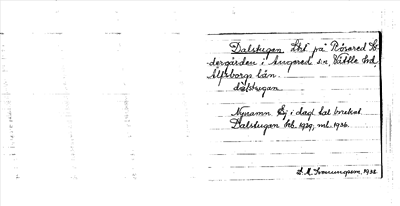 Dalstugen Lht på Rösered Sö-
dergården i Angered sn, Vättle hd,
Älfsborgs län.
dalstugan
Nynamn Ej i dagl tal brukat.
Dalstugen beb. 1929, ml. 1936.
1938